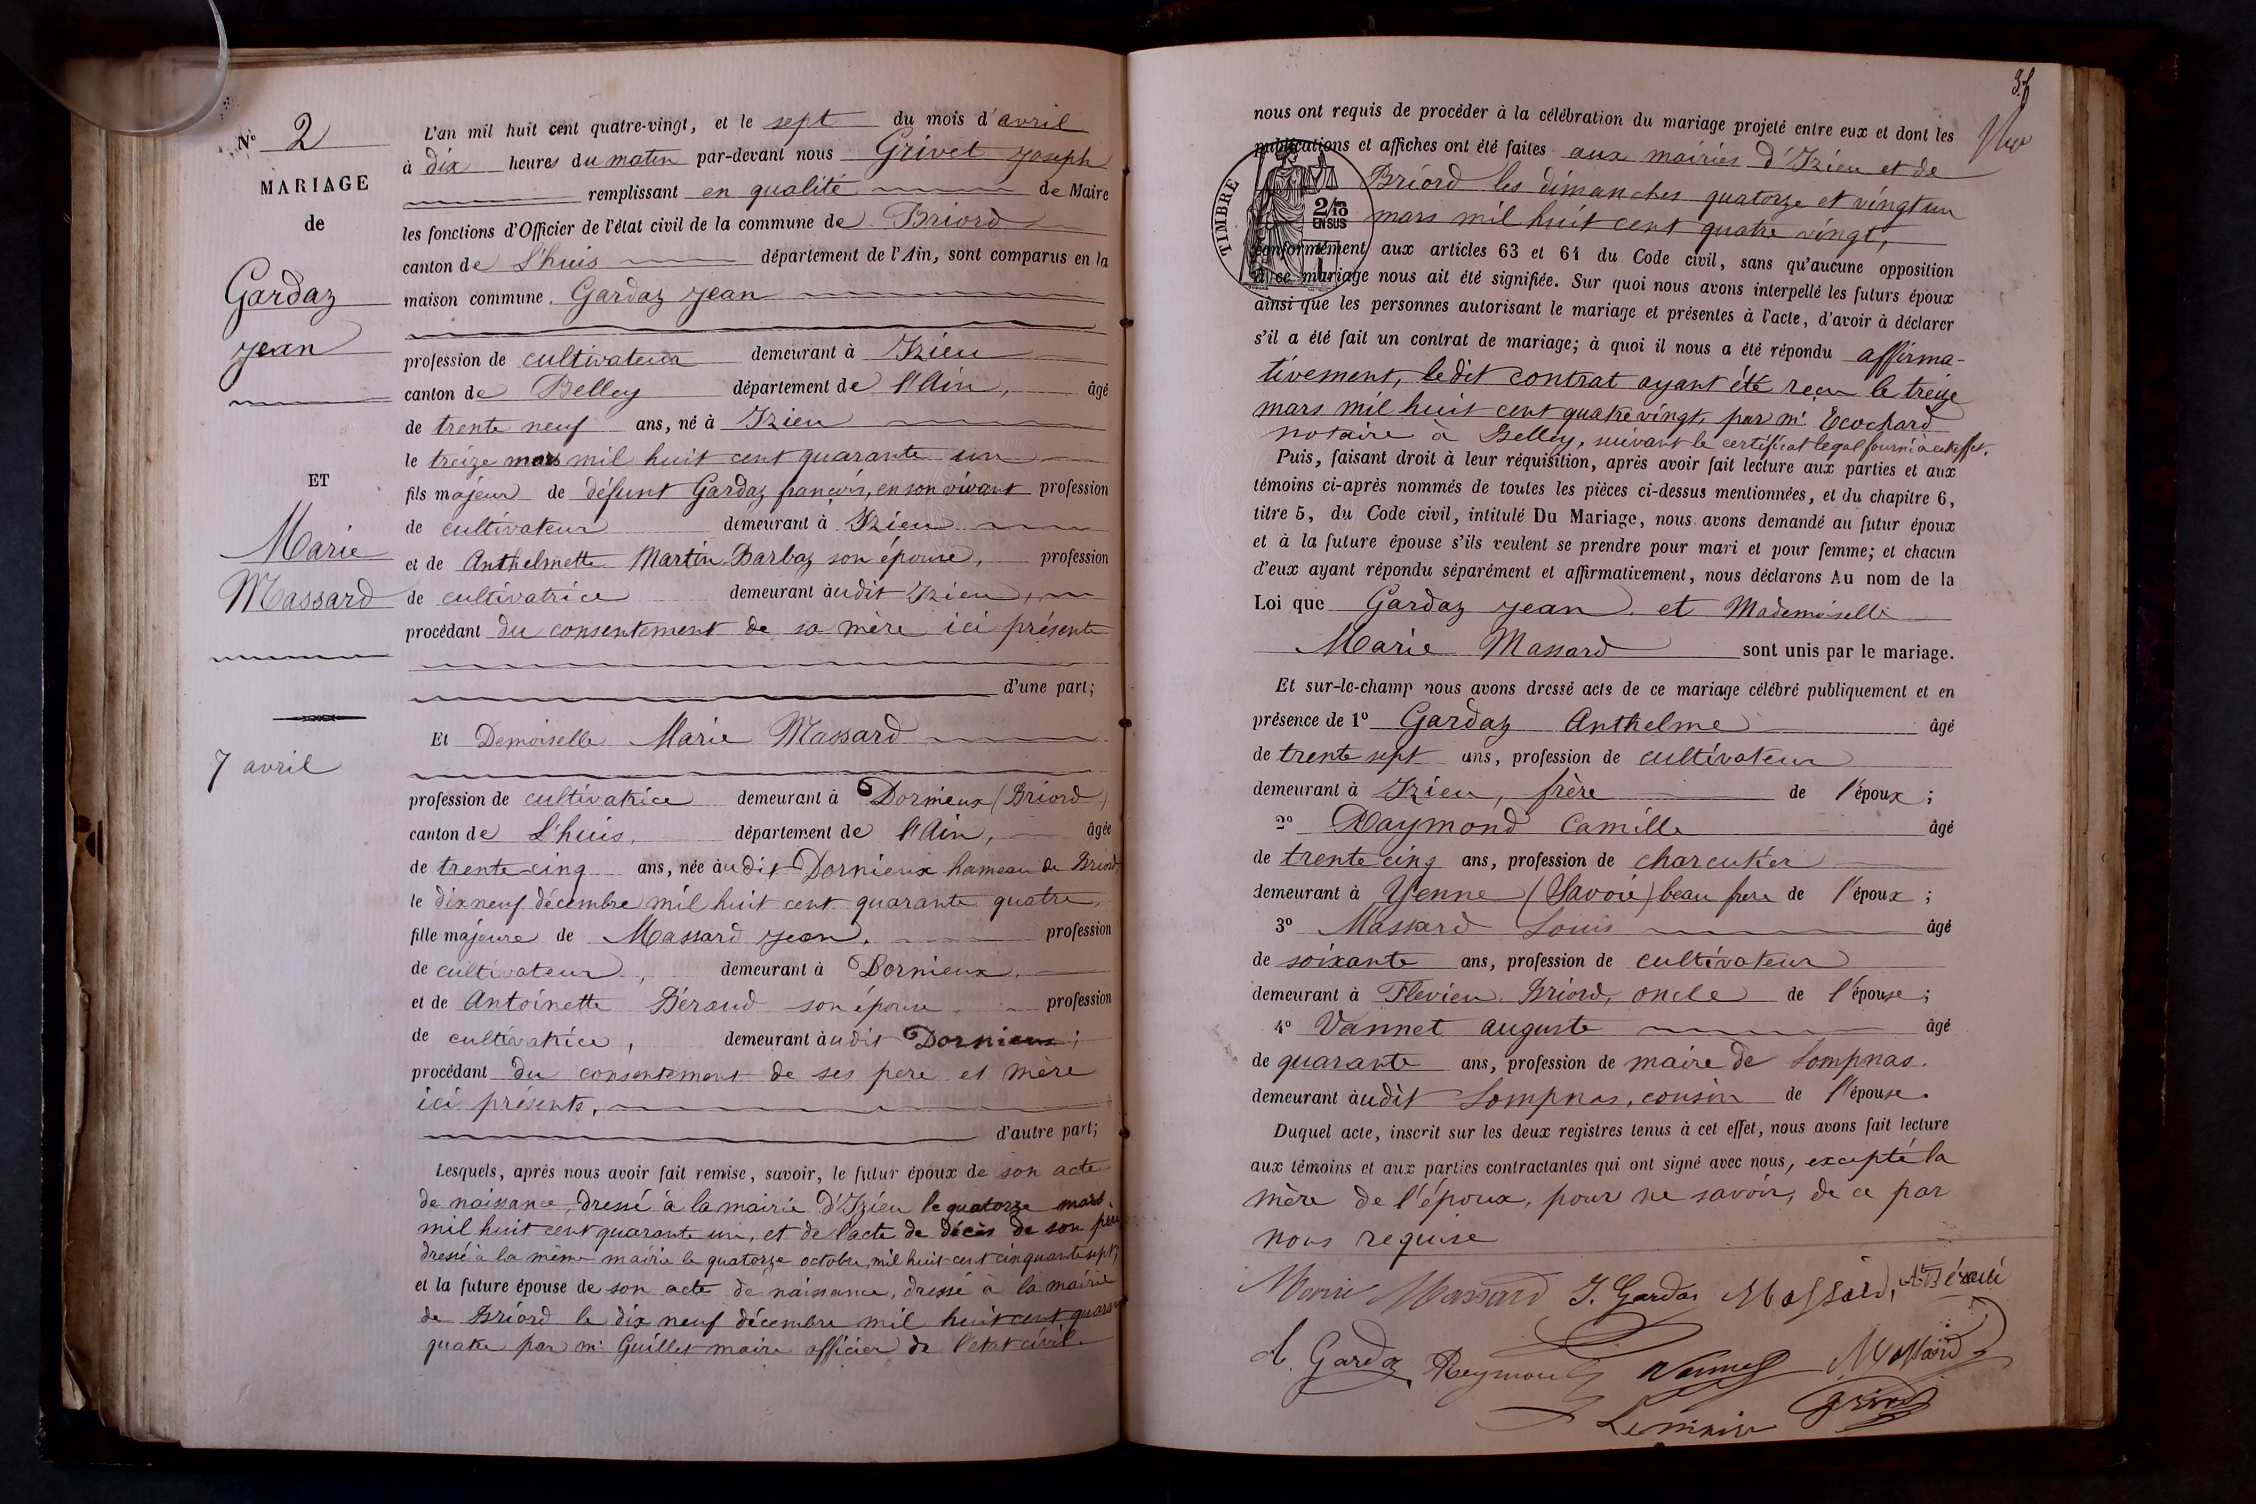 N° 2
MARIAGE
de
Gardaz
Jean
ET
Marie
Massard
7 avril
L'an mil huit cent quatre-vingt, et le sept du mois d'avril
à dix heures du matin par-devant nous Grivet Joseph
remplissant en qualité de Maire
les fonctions d'Officier de l'état civil de la commune de Briord
canton de L'huis département de l'Ain, sont comparus en la
maison commune. Gardaz Jean
profession de cultivateur demeurant à Izieu
canton de Belley département de l'Ain, âgé
de trente neuf ans, né à Izieu
le treize mars mil huit cent quarante un
fils majeur de défunt Gardaz françois, en son vivant profession
de cultivateur demeurant à Izieu
et de Anthelmette Martin-Barbaz son épouse, profession
de cultivatrice demeurant audit Izieu,
procédant du consentement de sa mère ici présente
d'une part;
Et Demoiselle Marie Massard
profession de cultivatrice demeurant à Dornieux (Briord)
canton de L'huis, département de l'Ain, âgée
de trente-cinq ans, née audit Dornieux hameau de Briord
le dix neuf décembre mil huit cent quarante quatre,
fille majeure de Massard Jean, profession
de cultivateur, demeurant à Dornieux,
et de Antoinette Béraud son épouse, profession
de cultivatrice, demeurant audit Dornieux;
procédant du consentement de ses père et mère
ici présents,
d'autre part;
Lesquels, après nous avoir fait remise, savoir, le futur époux de son acte
de naissance, dressé à la mairie d'Izieu le quatorze mars
mil huit cent quarante un, et de l'acte de décès de son père
dressé à la même mairie le quatorze octobre, mil huit cent cinquante sept;
et la future épouse de son acte de naissance, dressé à la mairie
de Briord le dix neuf décembre mil huit cent quarante
quatre par mr Guillet maire officier de l'état-civil.
nous ont requis de procéder à la célébration du mariage projeté entre eux et dont les
publications et affiches ont été faites aux mairies d'Izieu et de
Briord les dimanches quatorze et vingt un
mars mil huit cent quatre vingt,
TIMBRE
2/10
EN SUS
conformément aux articles 63 et 64 du Code civil, sans qu'aucune opposition
à ce mariage nous ait été signifiée. Sur quoi nous avons interpellé les futurs époux
ainsi que les personnes autorisant le mariage et présentes à l'acte, d'avoir à déclarer
s'il a été fait un contrat de mariage; à quoi il nous a été répondu affirma-
tivement, ledit contrat ayant été reçu le treize
mars mil huit cent quatre vingt, par mr. Ecochard
notaire à Belley, suivant le certificat légal fourni à cet effet.
Puis, faisant droit à leur réquisition, après avoir fait lecture aux parties et aux
témoins ci-après nommés de toutes les pièces ci-dessus mentionnées, et du chapitre 6,
titre 5, du Code civil, intitulé Du Mariage, nous avons demandé au futur époux
et à la future épouse s'ils veulent se prendre pour mari et pour femme; et chacun
d'eux ayant répondu séparément et affirmativement, nous déclarons Au nom de la
Loi que Gardaz Jean et Mademoiselle
Marie Massard sont unis par le mariage.
Et sur-le-champ nous avons dressé acte de ce mariage célébré publiquement et en
présence de 1° Gardaz Anthelme âgé
de trente sept ans, profession de cultivateur
demeurant à Izieu, frère de l'époux;
2° Raymond Camille âgé
de trente cinq ans, profession de charcutier
demeurant à Yenne (Savoie) beau frère de l'époux;
3° Massard Louis âgé
de soixante ans, profession de cultivateur
demeurant à Flevieu. Briord, oncle de l'épouse;
4° Vannet auguste âgé
de quarante ans, profession de maire de Lompnas.
demeurant audit Lompnas, cousin de l'épouse.
Duquel acte, inscrit sur les deux registres tenus à cet effet, nous avons fait lecture
aux témoins et aux parties contractantes qui ont signé avec nous, excepté la
mère de l'époux, pour ne savoir, de ce par
nous requise
Marie Massard J. Gardas Massard, Ate Béraud
A. Gardaz Reymond Vannet Massard
Le maire Grivet